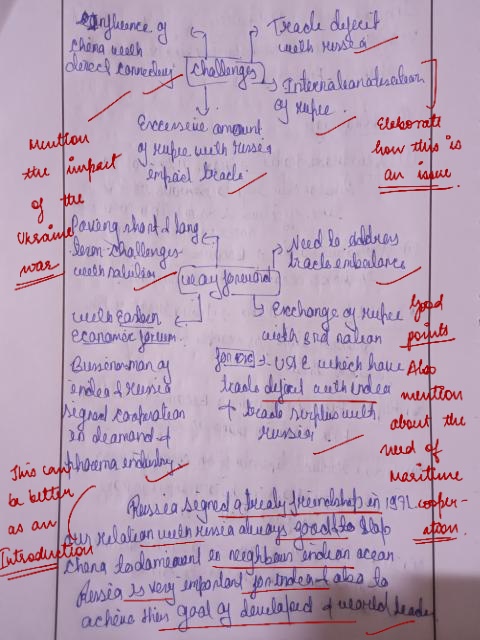 Influence of
china with
direct connectivity
Trade deficit
with russia
challenges
Internationalisation
of rupee.
Excessive amount
of rupee with russia
impact trade.
Mention
the impact
of the
Ukraine
war
Elaborate
how this is
an issue.
Paving short & long
term challenges
with solution
Need to address
trade imbalance
way forward
with Eastern
Economic forum.
Exchange of rupee
with 3rd nation
Good
points
Businessman of
india & russia
signed cooperation
in diamond &
pharma industry.
for ex → UAE which have
trade deficit with india
+ trade surplus with
russia.
Also
mention
about the
need of
Maritime
cooper-
ation.
This can
be better
as an
Introduction
Russia signed a treaty friendship in 1971
our relation with russia always good to stop
china to dominant in neighbour indian ocean
Russia is very important for india & also to
achieve their goal of developed & world leader